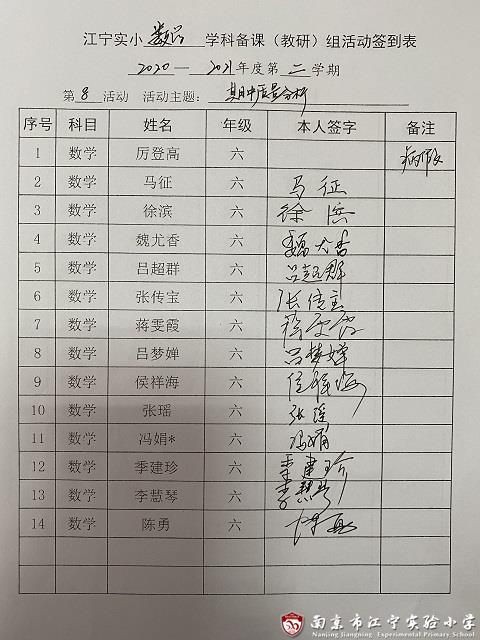 江宁实小 数学 学科备课（教研）组活动签到表
2020—2021年度第二学期
第 8 活动 活动主题：期中质量分析
序号 科目 姓名 年级 本人签字 备注
1 数学 厉登高 六 病假
2 数学 马征 六 马征
3 数学 徐滨 六 徐滨
4 数学 魏尤香 六 魏尤香
5 数学 吕超群 六 吕超群
6 数学 张传宝 六 张传宝
7 数学 蒋雯霞 六 蒋雯霞
8 数学 吕梦婵 六 吕梦婵
9 数学 侯祥海 六 侯祥海
10 数学 张瑶 六 张瑶
11 数学 冯娟* 六 冯娟
12 数学 季建珍 六 季建珍
13 数学 李慧琴 六 李慧琴
14 数学 陈勇 六 陈勇
南京市江宁实验小学
Nanjing Jiangning Experimental Primary School